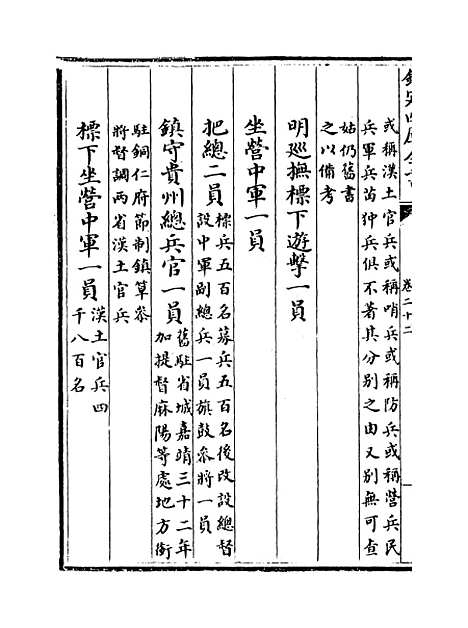 欽定四庫全書
卷二十二
或稱漢土官兵或稱哨兵或稱防兵或稱營兵民
兵軍兵苗狆兵俱不著其分別之由又別無可查
姑仍舊書
之以備考
明廵撫標下遊擊一員
坐營中軍一員
把總二員標兵五百名募兵五百名後改設總督
設中軍副總兵一員旗鼓叅將一員
鎮守貴州總兵官一員舊駐省城嘉靖三十二年
加提督麻陽等處地方銜
駐銅仁府節制鎮筸叅
將督調兩省漢土官兵
標下坐營中軍一員漢土官兵四
千八百名